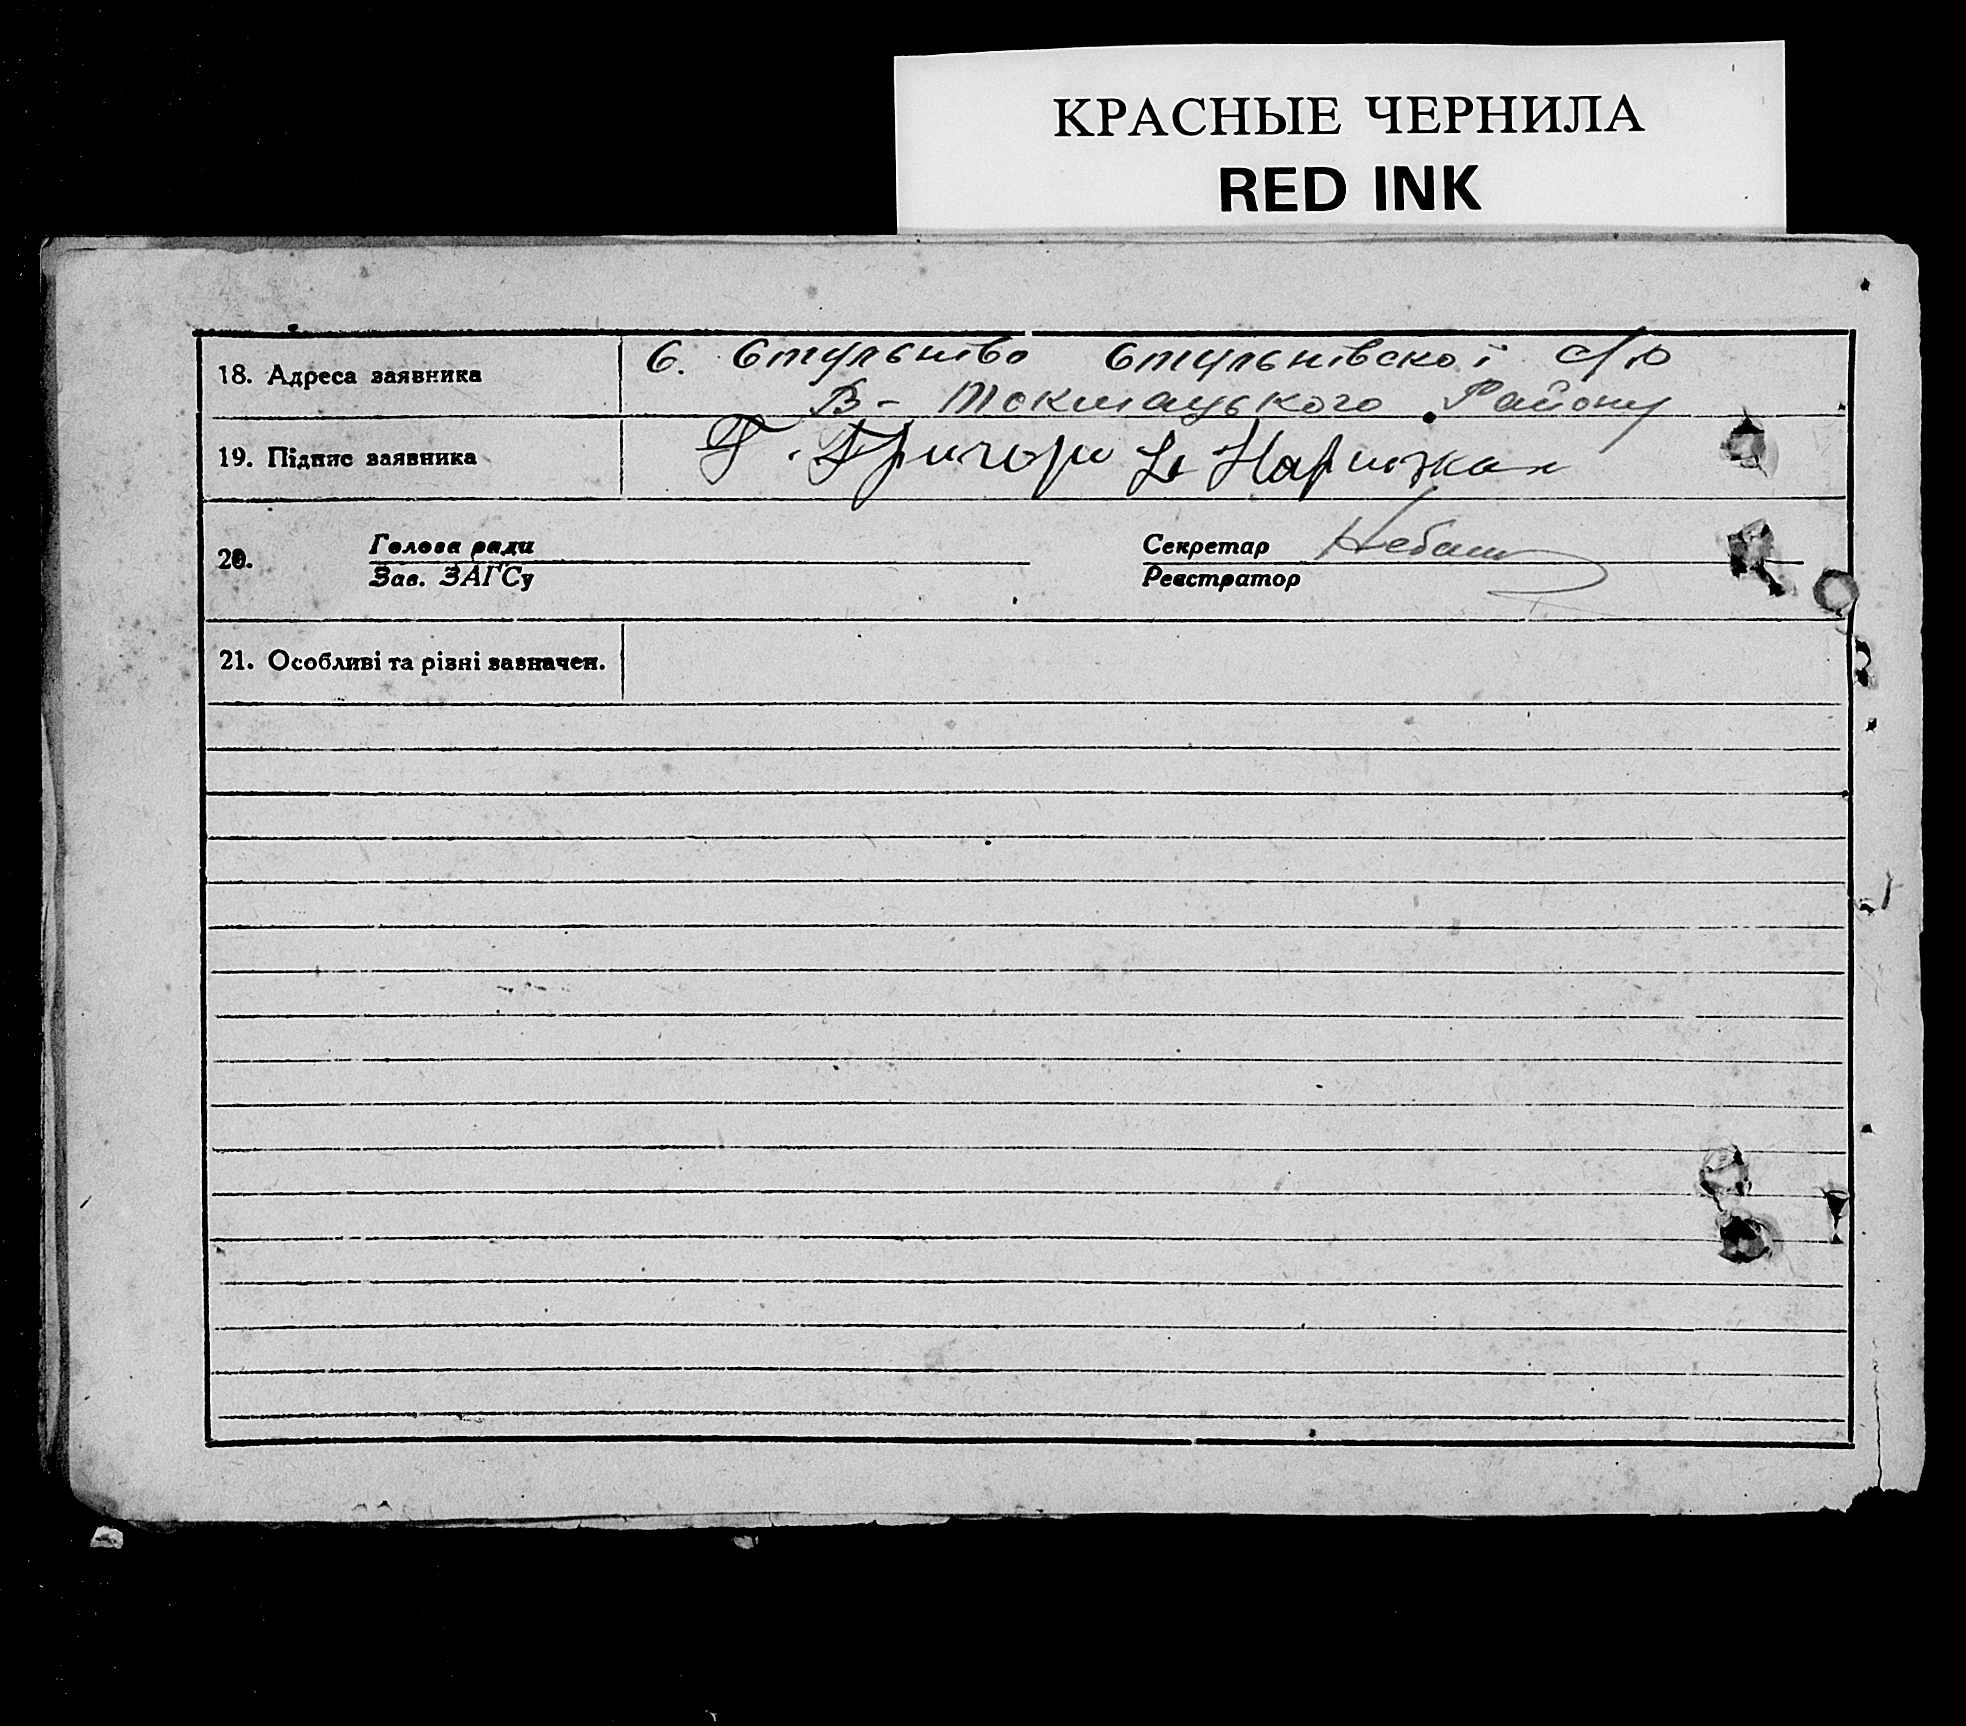 КРАСНЫЕ ЧЕРНИЛА
RED INK
18. Адреса заявника
с. Стульнiво Стульнiвскоï с/ю
В- Токмацького Району
19. Підпис заявника
Г. Григори
20. Голова ради
Зав. ЗАГСу
Секретар
Реєстратор
21. Особливі та різні зазначен.